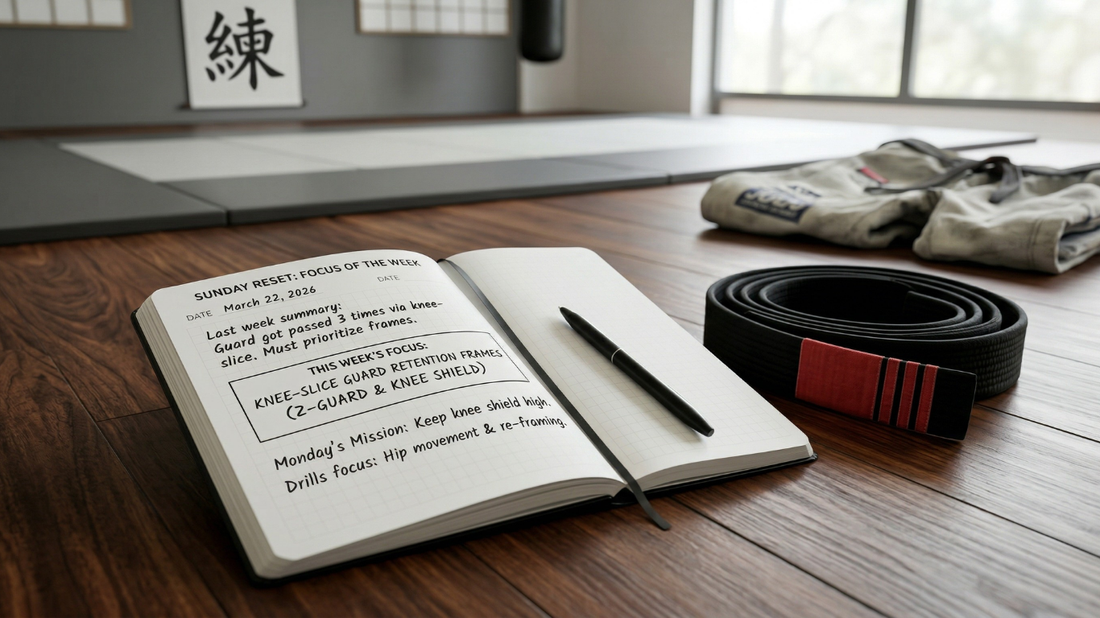 練
SUNDAY RESET: FOCUS OF THE WEEK
DATE
DATE March 22, 2026
Last week summary:
Guard got passed 3 times via knee-
slice. Must prioritize frames.
THIS WEEK'S FOCUS:
KNEE-SLICE GUARD RETENTION FRAMES
(Z-GUARD & KNEE SHIELD)
Monday's Mission: Keep knee shield high.
Drills focus: Hip movement & re-framing.